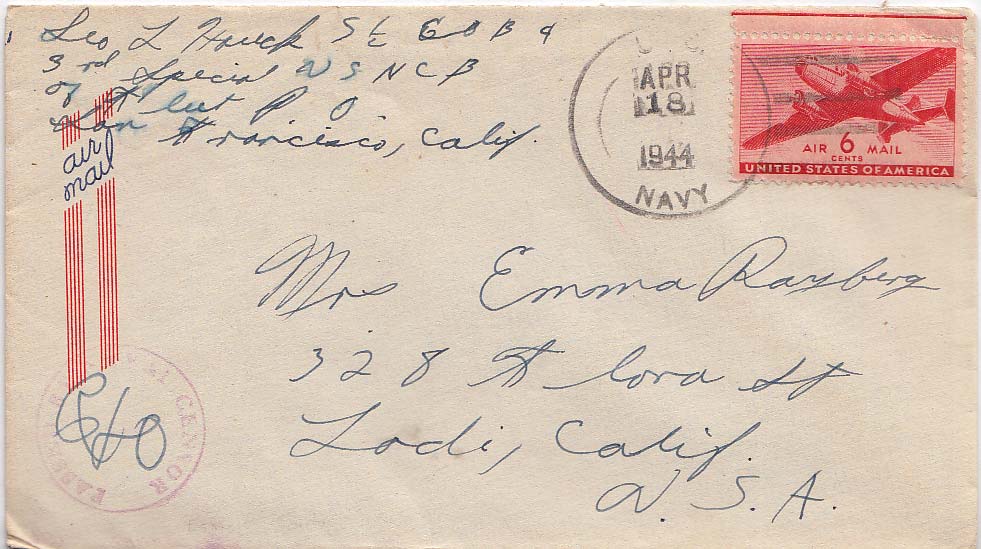 Leo L Houck S 1/C Co B 4
3rd Special U S N C B
℅ Fleet P O
San Francisco, Calif.
air
mail
U. S.
APR
18
1944
NAVY
AIR 6 MAIL
CENTS
UNITED STATES OF AMERICA
Mrs Emma Rayberg
328 Flora st
Lodi, Calif.
U. S. A.
CENSOR